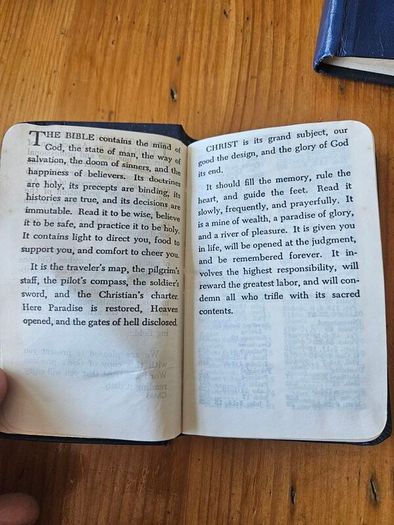 THE BIBLE contains the mind of
God, the state of man, the way of
salvation, the doom of sinners, and the
happiness of believers. Its doctrines
are holy, its precepts are binding, its
histories are true, and its decisions are
immutable. Read it to be wise, believe
it to be safe, and practice it to be holy.
It contains light to direct you, food to
support you, and comfort to cheer you.
It is the traveler's map, the pilgrim's
staff, the pilot's compass, the soldier's
sword, and the Christian's charter.
Here Paradise is restored, Heaven
opened, and the gates of hell disclosed
CHRIST is its grand subject, our
good the design, and the glory of God
its end.
It should fill the memory, rule the
heart, and guide the feet. Read it
slowly, frequently, and prayerfully. It
is a mine of wealth, a paradise of glory,
and a river of pleasure. It is given you
in life, will be opened at the judgment,
and be remembered forever. It in-
volves the highest responsibility, will
reward the greatest labor, and will con-
demn all who trifle with its sacred
contents.